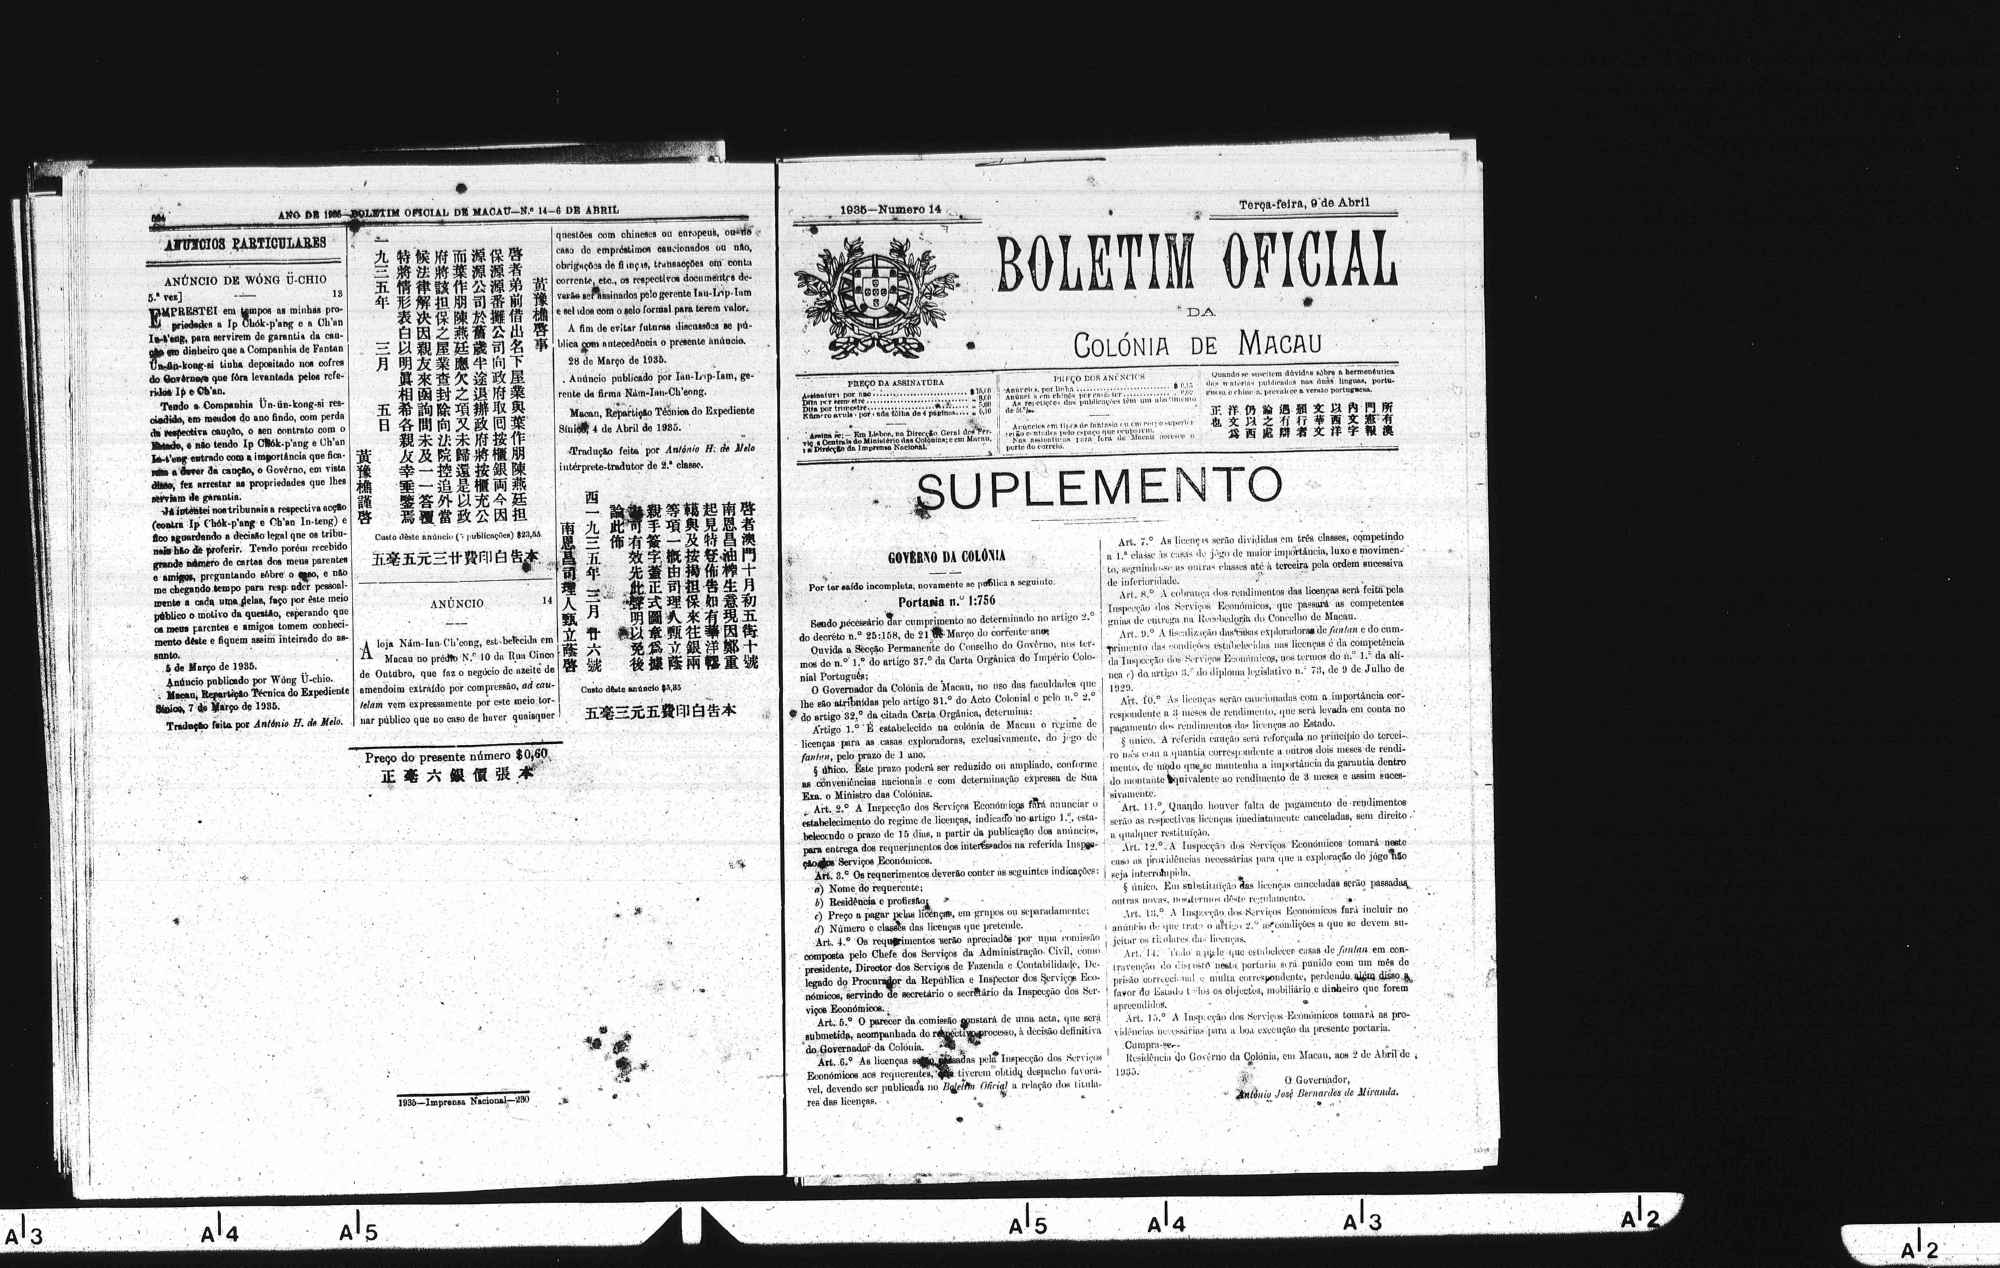 ANO DE 1935—BOLETIM OFICIAL DE MACAU—N.º 14—6 DE ABRIL
ANUNCIOS PARTICULARES
ANÚNCIO DE WÓNG Ü-CHIO
5.ª vez] 13
EMPRESTEI em tempos as minhas pro-
priedades a Ip Chók-p'ang e a Ch'an
In-t'eng, para servirem de garantia da cau-
ção em dinheiro que a Companhia de Fantan
Ün-ün-kong-si tinha depositado nos cofres
do Govêrno e que fôra levantada pelos refe-
ridos Ip e Ch'an.
Tendo a Companhia Ün-ün-kong-si res-
cindido, em meados do ano findo, com perda
da respectiva caução, o seu contrato com o
Estado, e não tendo Ip Chók-p'ang e Ch'an
In-t'eng entrado com a importância que fica-
ram a dever da caução, o Govêrno, em vista
disso, fez arrestar as propriedades que lhes
serviam de garantia.
Já intentei nos tribunais a respectiva acção
(contra Ip Chók-p'ang e Ch'an In-teng) e
fico aguardando a decisão legal que os tribu-
nais hão de proferir. Tendo porém recebido
grande número de cartas dos meus parentes
e amigos, preguntando sôbre o caso, e não
me chegando tempo para responder pessoal-
mente a cada uma delas, faço por êste meio
público o motivo da questão, esperando que
os meus parentes e amigos tomem conheci-
mento dêste e fiquem assim inteirado do as-
sunto.
5 de Março de 1935.
Anúncio publicado por Wóng Ü-chio.
Macau, Repartição Técnica do Expediente
Sínico, 7 de Março de 1935.
Tradução feita por António H. de Melo.
黃豫樵啓事
啓者弟前借出名下屋業與葉作朋陳燕廷担
保源源番攤公司向政府取囘按櫃銀両今因
源源公司於舊歲半途退辦政府將按櫃充公
而葉作朋陳燕廷應欠之項又未歸還是以政
府將該担保之屋業查封除向法院控追外當
候法律解决因親友來函詢問未及一一答覆
特將情形表白以明眞相希各親友幸垂鑒焉
一九三五年 三月 五日
黃豫樵謹啓
Custo dêste anúncio (5 publicações) $23,55
五毫五元三廿費印白告本
ANÚNCIO 14
A loja Nám-Ian-Ch'eong, estabelecida em
Macau no prédio N.º 10 da Rua Cinco
de Outúbro, que faz o negócio de azeite de
amendoim extraído por compressão, ad cau-
telam vem expressamente por este meio tor-
nar público que no caso de haver quaisquer
questões com chineses ou europeus, ou no
caso de empréstimos caucionados ou não,
obrigações de fianças, transacções em conta
corrente, etc., os respectivos documentos de-
varão ser assinados pelo gerente Ian-Lap-Iam
e selados com o selo formal para terem valor.
A fim de evitar futuras discussões se pú-
blica com antecedência o presente anúncio.
28 de Março de 1935.
Anúncio publicado por Ian-Lap-Iam, ge-
rente da firma Nám-Ian-Ch'eong.
Macau, Repartição Técnica do Expediente
Sínico, 4 de Abril de 1935.
Tradução feita por António H. de Melo
intérprete-tradutor de 2.ª classe.
啓者澳門十月初五街十號
南恩昌油榨生意現因鄭重
起見特登佈告如有華洋轇
轕與及按揭担保來往銀兩
等項一概由司理人甄立蔭
親手簽字蓋正式圖章爲據
可有效先此聲明以免後
論此佈
西一九三五年三月廿六號
南恩昌司理人甄立蔭啓
Custo dêste anúncio $5,35
五毫三元五費印白告本
Preço do presente número $0,60
正毫六銀價張本
1935—Imprensa Nacional—230
1935—Numero 14
Terça-feira, 9 de Abril
BOLETIM OFICIAL
DA
COLÓNIA DE MACAU
PREÇO DA ASSINATURA
Assinatura por ano
Dita por semestre
Dita por trimestre
Número avulso por cada fôlha de 4 páginas
Assina-se:—Em Lisboa, na Direcção Geral dos Ser-
viços Centrais do Ministério das Colónias; e em Macau,
na Direcção da Imprensa Nacional.
PREÇO DOS ANÚNCIOS
Anúncios, por linha $ 0,15
Anúncios em chinês por carácter
As repetições das publicações têm um abatimento
de 50%.
Anúncios em tipos de fantasia ou em corpo superior
serão contados pelo espaço que ocuparem.
Nas assinaturas para fora de Macau acresce o
porte do correio.
Quando se suscitem dúvidas sôbre a hermenêutica
das matérias publicadas nas duas línguas, portu-
guesa e chinesa, prevalece a versão portuguesa.
正洋仍論遇類文以內門所
也文以之有行華西文憲有
爲西處辯者文洋字報澳
SUPLEMENTO
GOVÊRNO DA COLÓNIA
Por ter saído incompleta, novamente se publica a seguinte:
Portaria n.º 1:756
Sendo necessário dar cumprimento ao determinado no artigo 2.º
do decreto n.º 25:158, de 21 de Março do corrente ano;
Ouvida a Secção Permanente do Conselho do Govêrno, nos ter-
mos do n.º 1.º do artigo 37.º da Carta Orgânica do Império Colo-
nial Português;
O Governador da Colónia de Macau, no uso das faculdades que
lhe são atribuídas pelo artigo 31.º do Acto Colonial e pelo n.º 2.º
do artigo 32.º da citada Carta Orgânica, determina:
Artigo 1.º É estabelecido na colónia de Macau o regime de
licenças para as casas exploradoras, exclusivamente, do jogo de
fantan, pelo prazo de 1 ano.
§ único. Êste prazo poderá ser reduzido ou ampliado, conforme
as conveniências nacionais e com determinação expressa de Sua
Exa. o Ministro das Colónias.
Art. 2.º A Inspecção dos Serviços Económicos fará anunciar o
estabelecimento do regime de licenças, indicado no artigo 1.º, esta-
belecendo o prazo de 15 dias, a partir da publicação dos anúncios,
para entrega dos requerimentos dos interessados na referida Inspec-
ção dos Serviços Económicos.
Art. 3.º Os requerimentos deverão conter as seguintes indicações:
a) Nome do requerente;
b) Residência e profissão;
c) Preço a pagar pelas licenças, em grupos ou separadamente;
d) Número e classes das licenças que pretende.
Art. 4.º Os requerimentos serão apreciados por uma comissão
composta pelo Chefe dos Serviços da Administração Civil, como
presidente, Director dos Serviços de Fazenda e Contabilidade, De-
legado do Procurador da República e Inspector dos Serviços Eco-
nómicos, servindo de secretário o secretário da Inspecção dos Ser-
viços Económicos.
Art. 5.º O parecer da comissão constará de uma acta, que será
submetida, acompanhada do respectivo processo, à decisão definitiva
do Governador da Colónia.
Art. 6.º As licenças serão passadas pela Inspecção dos Serviços
Económicos aos requerentes, que tiverem obtido despacho favorá-
vel, devendo ser publicada no Boletim Oficial a relação dos titula-
res das licenças.
Art. 7.º As licenças serão divididas em três classes, competindo
a 1.ª classe às casas de jôgo de maior importância, luxo e movimen-
to, seguindo-se as outras classes até à terceira pela ordem sucessiva
de inferioridade.
Art. 8.º A cobrança dos rendimentos das licenças será feita pela
Inspecção dos Serviços Económicos, que passará as competentes
guias de entrega na Recebedoria do Concelho de Macau.
Art. 9.º A fiscalização das casas exploradoras de fantan e do cum-
primento das condições estabelecidas nas licenças é da competência
da Inspecção dos Serviços Económicos, nos termos do n.º 1.º da alí-
nea c) do artigo 3.º do diploma legislativo n.º 73, de 9 de Julho de
1929.
Art. 10.º As licenças serão caucionadas com a importância cor-
respondente a 3 meses de rendimento, que será levada em conta no
pagamento dos rendimentos das licenças ao Estado.
§ único. A referida caução será reforçada no princípio do tercei-
ro mês com a quantia correspondente a outros dois meses de rendi-
mento, de modo que se mantenha a importância da garantia dentro
do montante equivalente ao rendimento de 3 meses e assim suces-
sivamente.
Art. 11.º Quando houver falta de pagamento de rendimentos
serão as respectivas licenças imediatamente canceladas, sem direito
a qualquer restituïção.
Art. 12.º A Inspecção dos Serviços Económicos tomará neste
caso as providências necessárias para que a exploração do jôgo não
seja interrompida.
§ único. Em substituïção das licenças canceladas serão passadas
outras novas, nos termos dêste regulamento.
Art. 13.º A Inspecção dos Serviços Económicos fará incluir no
anúncio de que trata o artigo 2.º as condições a que se devem su-
jeitar os titulares das licenças.
Art. 14. Todo aquele que estabelecer casas de fantan em con-
travenção do disposto nesta portaria será punido com um mês de
prisão correccional e multa correspondente, perdendo além disso a
favor do Estado todos os objectos, mobiliário e dinheiro que forem
apreendidos.
Art. 15.º A Inspecção dos Serviços Económicos tomará as pro-
vidências necessárias para a boa execução da presente portaria.
Cumpra-se.
Residência do Govêrno da Colónia, em Macau, aos 2 de Abril de
1935.
O Governador,
António José Bernardes de Miranda.
A3 A4 A5 A5 A4 A3 A2 A2